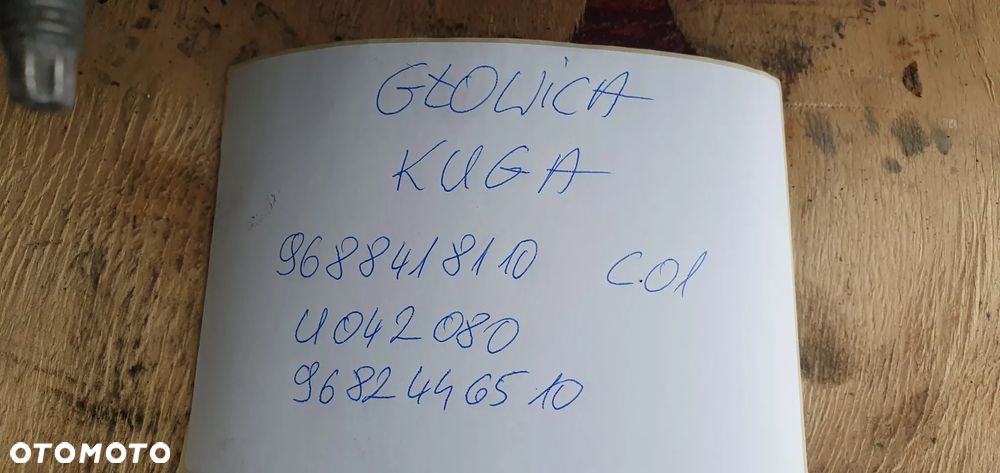 GŁOWICA
KUGA
9688418110 C.01
4042080
9682446510
OTOMOTO